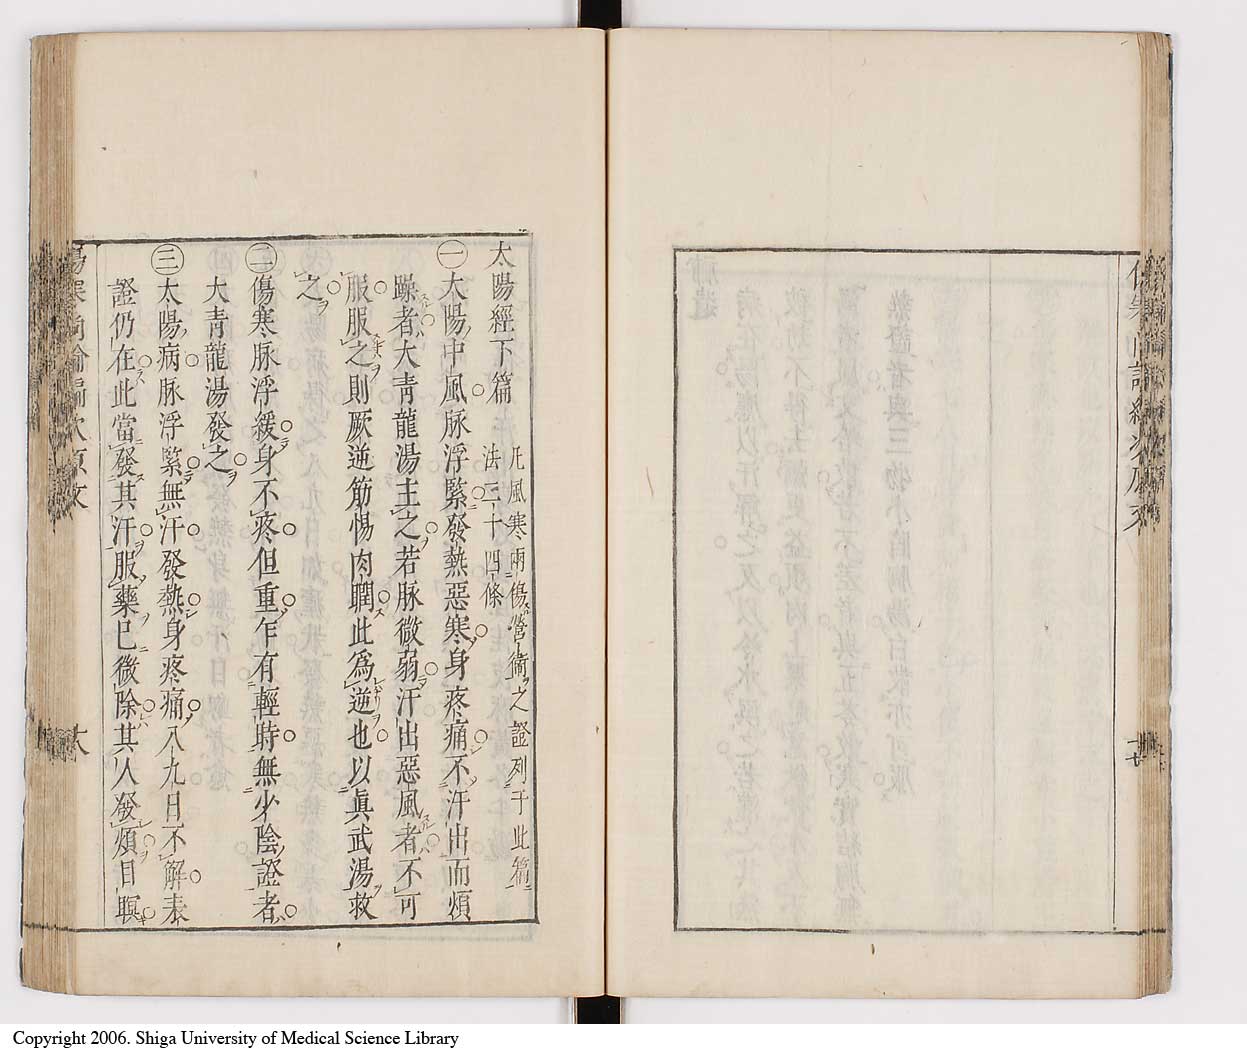 太陽經下篇
凡風寒兩傷營衞之證列于此篇
法三十四條
㊀太陽中風脉浮緊發熱惡寒身疼痛不汗出而煩
躁者大靑龍湯主之若脉微弱汗出惡風者不可
服服之則厥逆筋惕肉瞤此爲逆也以眞武湯救
之
㊁傷寒脉浮緩身不疼但重乍有輕時無少陰證者
大靑龍湯發之
㊂太陽病脉浮緊無汗發熱身疼痛八九日不解表
證仍在此當發其汗服藥已微除其人發煩目瞑
Copyright 2006. Shiga University of Medical Science Library